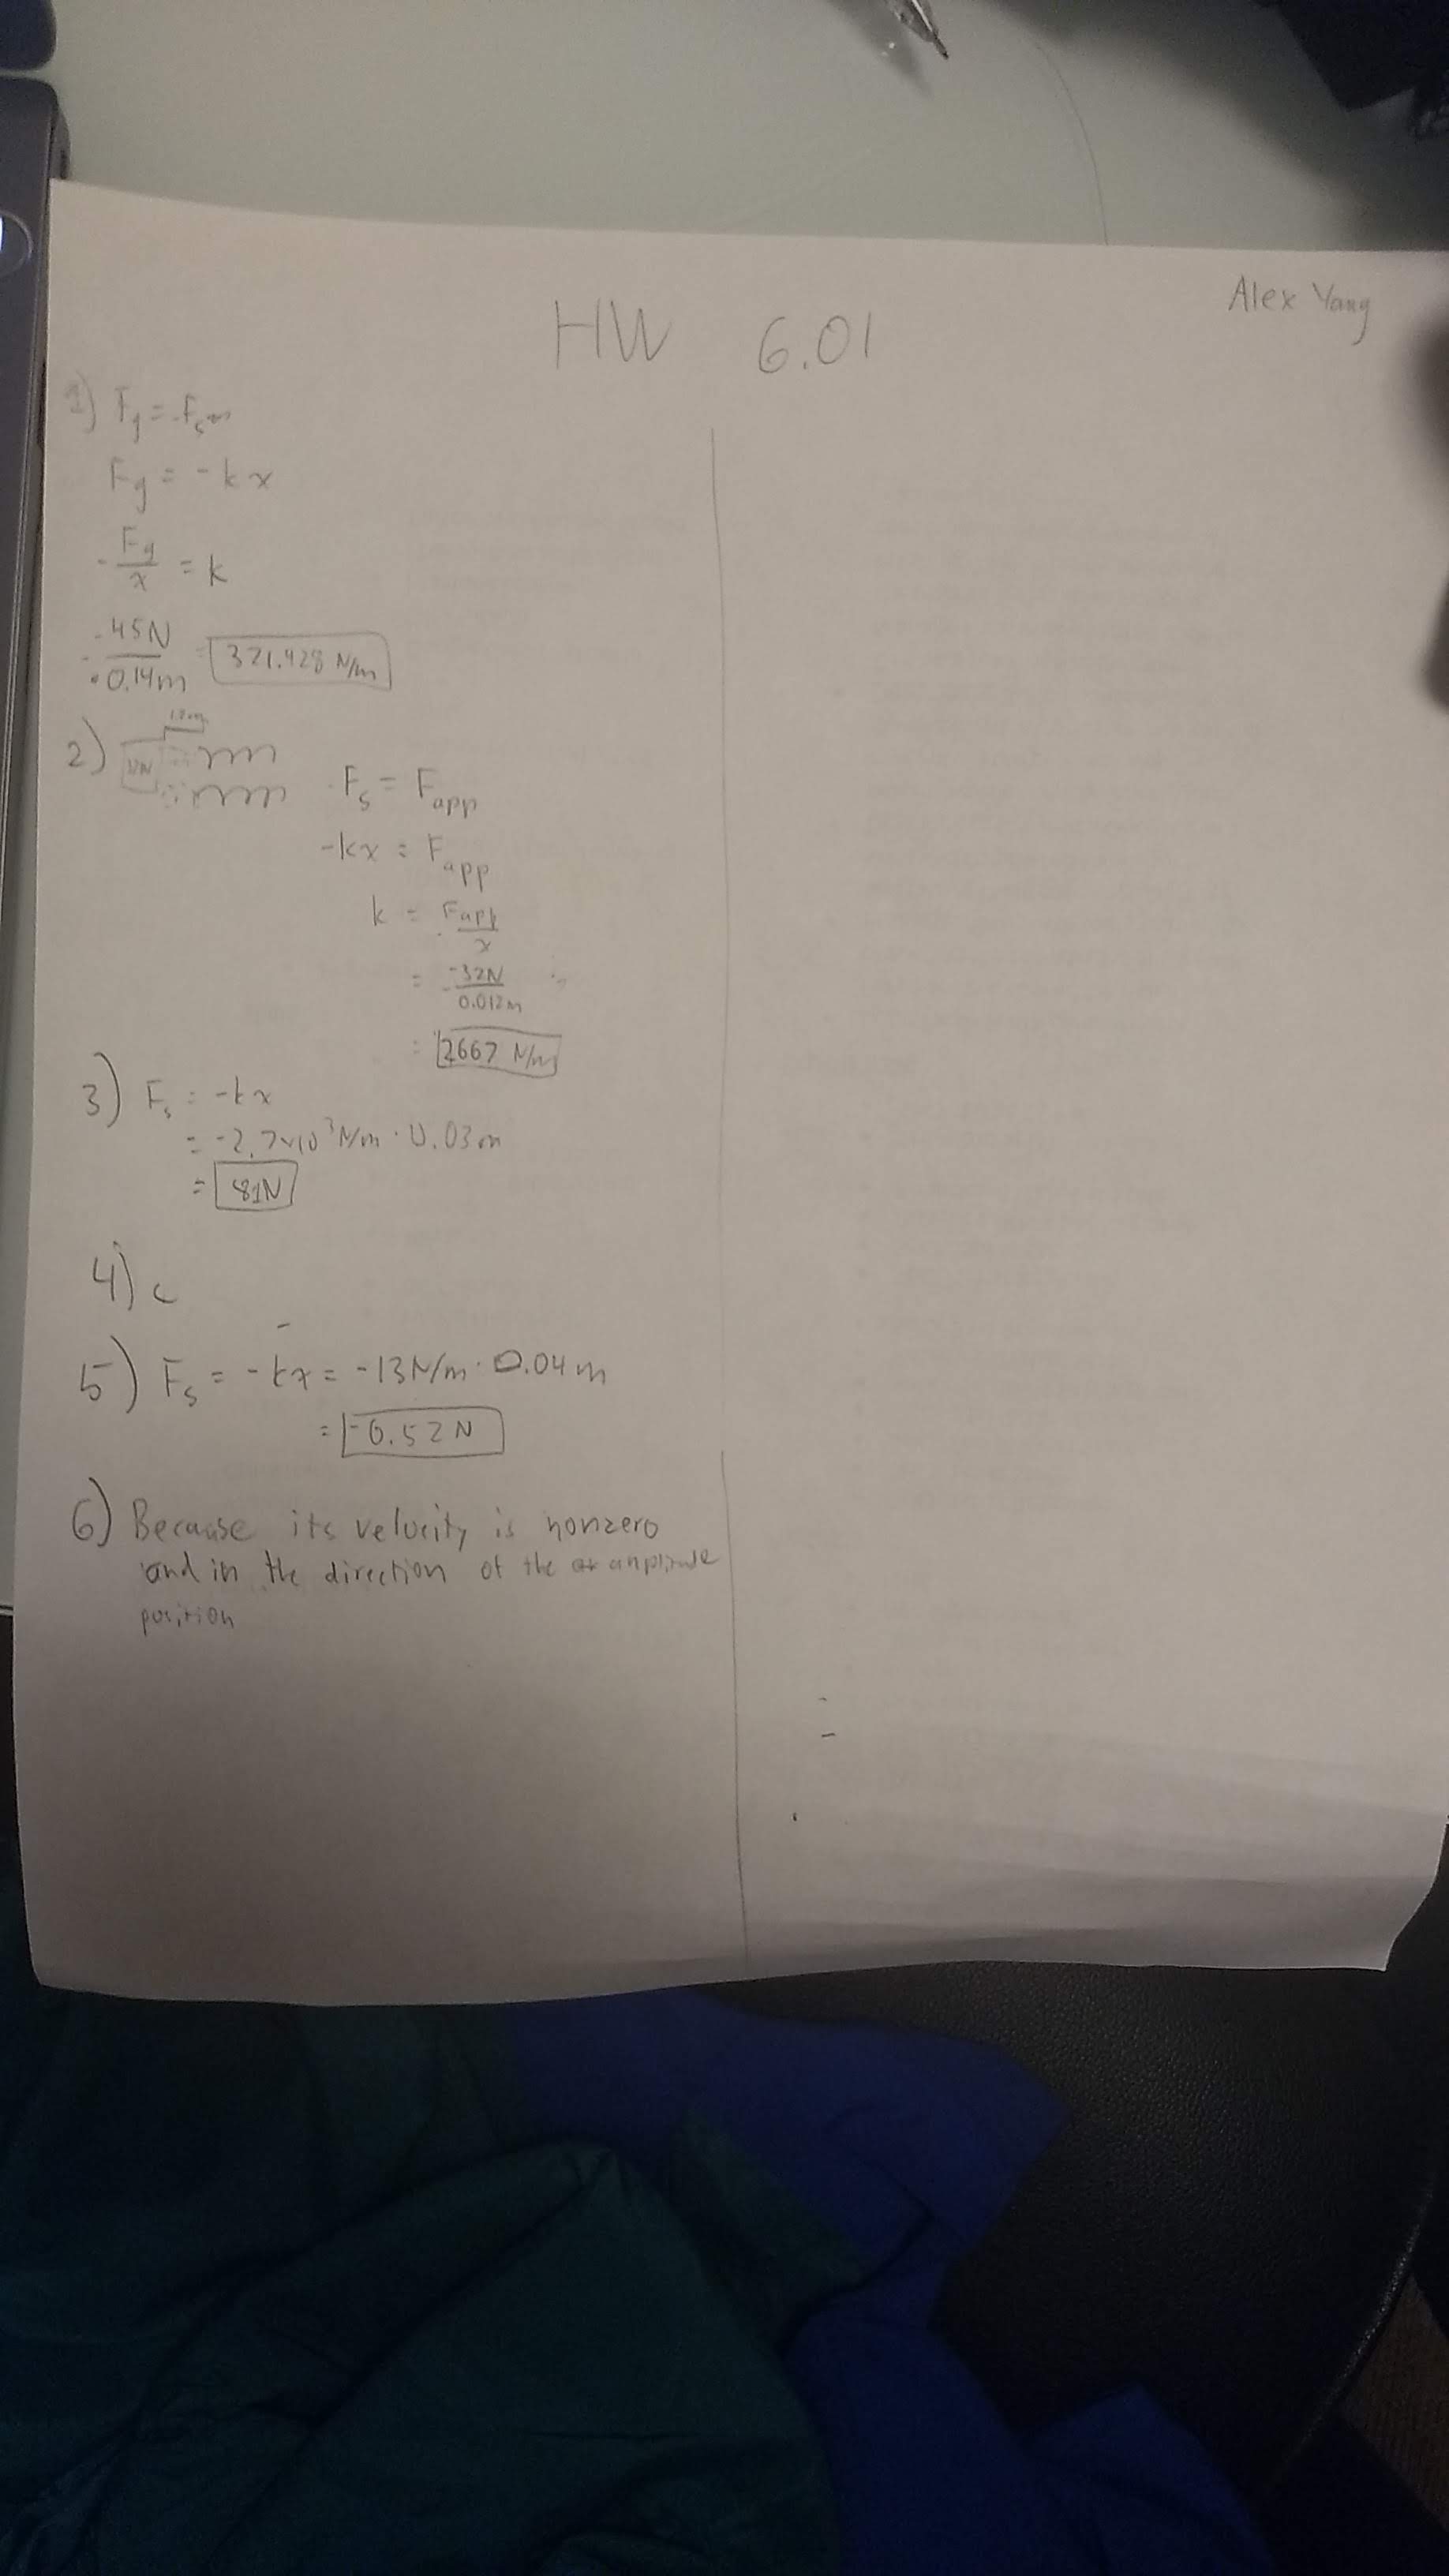 HW 6.01
Alex Yang
1) Fg = -Fs
Fg = -kx
-Fg/x = k
- -45N / 0.14m = 321.428 N/m
2)
Fs = Fapp
-kx = Fapp
k = -Fapp/x
= - -32N / 0.012m
= 2667 N/m
3) Fs = -kx
= -2.7×10³ N/m · 0.03m
= 81N
4) c
5) Fs = -kx = -13N/m · 0.04m
= -0.52N
6) Because its velocity is nonzero
and in the direction of the amplitude
position